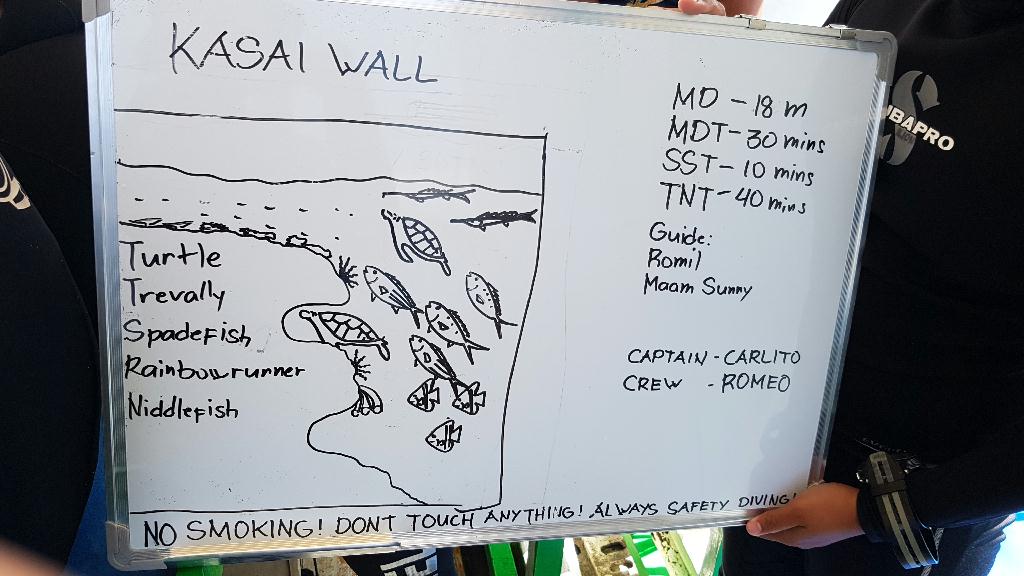 KASAI WALL
MD - 18 m
MDT - 30 mins
SST - 10 mins
TNT - 40 mins
Guide:
Romil
Maam Sunny
Turtle
Trevally
Spadefish
Rainbowrunner
Niddlefish
CAPTAIN - CARLITO
CREW - ROMEO
NO SMOKING! DONT TOUCH ANYTHING! ALWAYS SAFETY DIVING!